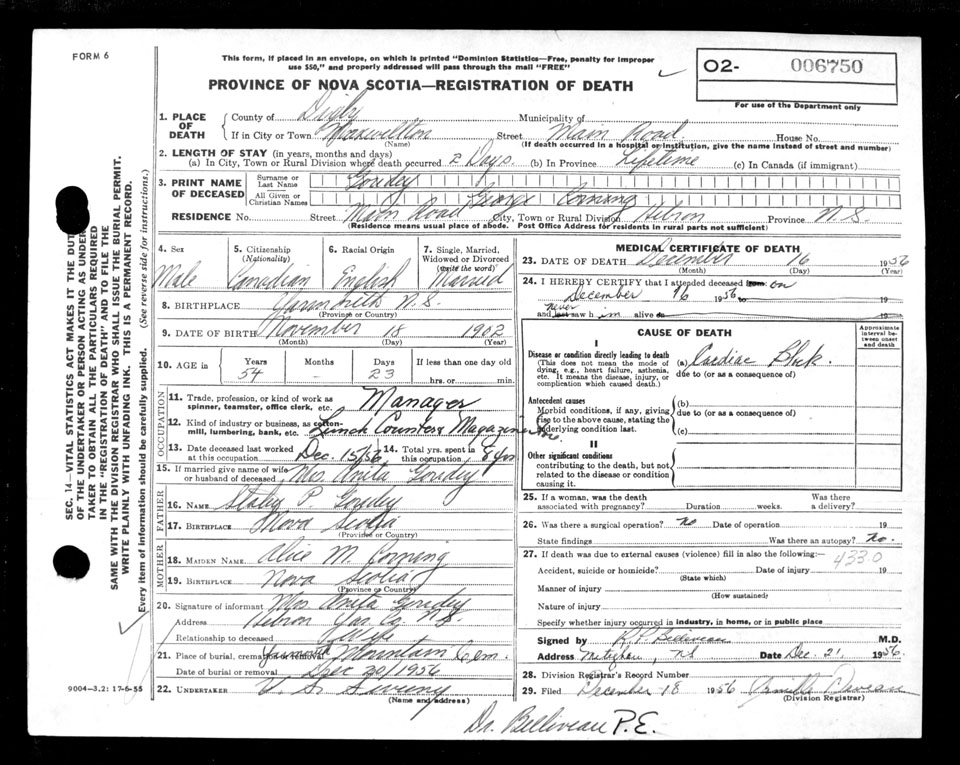 FORM 6
This form, if placed in an envelope, on which is printed "Dominion Statistics—Free, penalty for improper
use $50," and properly addressed will pass through the mail "FREE"
PROVINCE OF NOVA SCOTIA—REGISTRATION OF DEATH
O2- 006750
For use of the Department only
1. PLACE OF DEATH
County of Digby Municipality of
If in City or Town Maxwellton Street Main Road House No.
(Name) (If death occurred in a hospital or institution, give the name instead of street and number)
2. LENGTH OF STAY (in years, months and days)
(a) In City, Town or Rural Division where death occurred 2 Days (b) In Province Lifetime (c) In Canada (if immigrant)
3. PRINT NAME OF DECEASED
Surname or Last Name Gourdey
All Given or Christian Names George Corning
RESIDENCE No. Street Main Road City, Town or Rural Division Hebron Province N.S.
(Residence means usual place of abode. Post Office Address for residents in rural parts not sufficient)
4. Sex Male
5. Citizenship (Nationality) Canadian
6. Racial Origin English
7. Single, Married, Widowed or Divorced (write the word) Married
8. BIRTHPLACE Yarmouth N.S.
(Province or Country)
9. DATE OF BIRTH November 18 1902
(Month) (Day) (Year)
10. AGE in Years 54 Months Days 23 If less than one day old hrs. or min.
OCCUPATION
11. Trade, profession, or kind of work as spinner, teamster, office clerk, etc. Manager
12. Kind of industry or business, as cotton-mill, lumbering, bank, etc. Lunch Counter & Magazine
13. Date deceased last worked at this occupation Dec. 15/56 14. Total yrs. spent in this occupation, 8 yrs
15. If married give name of wife or husband of deceased Mrs. Anita Gourdey
FATHER
16. NAME P. Gourdey
17. BIRTHPLACE Nova Scotia
(Province or Country)
MOTHER
18. MAIDEN NAME Alice M. Corning
19. BIRTHPLACE Nova Scotia
(Province or Country)
20. Signature of informant Mrs. Anita Gourdey
Address Hebron Yar. Co. N.S.
Relationship to deceased Wife
21. Place of burial, cremation or removal Mountain Cem.
Date of burial or removal Dec 20/1956
22. UNDERTAKER V. S. Sweeny
(Name and address)
MEDICAL CERTIFICATE OF DEATH
23. DATE OF DEATH December 16 1956
(Month) (Day) (Year)
24. I HEREBY CERTIFY that I attended deceased from on
December 16 1956 19
and last never saw him alive 19
CAUSE OF DEATH
Approximate interval between onset and death
I
Disease or condition directly leading to death
(This does not mean the mode of dying, e.g., heart failure, asthenia, etc. It means the disease, injury, or complication which caused death.)
(a) Cardiac Block.
due to (or as a consequence of)
Antecedent causes
Morbid conditions, if any, giving rise to the above cause, stating the underlying condition last.
(b)
due to (or as a consequence of)
(c)
II
Other significant conditions
contributing to the death, but not related to the disease or condition causing it.
25. If a woman, was the death associated with pregnancy? Duration weeks. Was there a delivery?
26. Was there a surgical operation? No Date of operation 19
State findings Was there an autopsy? No.
27. If death was due to external causes (violence) fill in also the following:— 4330
Accident, suicide or homicide? Date of injury 19
(State which)
Manner of injury
(How sustained)
Nature of injury
Specify whether injury occurred in industry, in home, or in public place
Signed by R.P. Belliveau M.D.
Address Meteghan, NS Date Dec. 21, 1956.
28. Division Registrar's Record Number
29. Filed December 18 1956
(Division Registrar)
Dr. Belliveau P.E.
SEC. 14—VITAL STATISTICS ACT MAKES IT THE DUTY
OF THE UNDERTAKER OR PERSON ACTING AS UNDER-
TAKER TO OBTAIN ALL THE PARTICULARS REQUIRED
IN THE "REGISTRATION OF DEATH" AND TO FILE THE
SAME WITH THE DIVISION REGISTRAR WHO SHALL ISSUE THE BURIAL PERMIT.
WRITE PLAINLY WITH UNFADING INK. THIS IS A PERMANENT RECORD.
Every item of information should be carefully supplied. (See reverse side for instructions.)
9004—3.2: 17-6-55